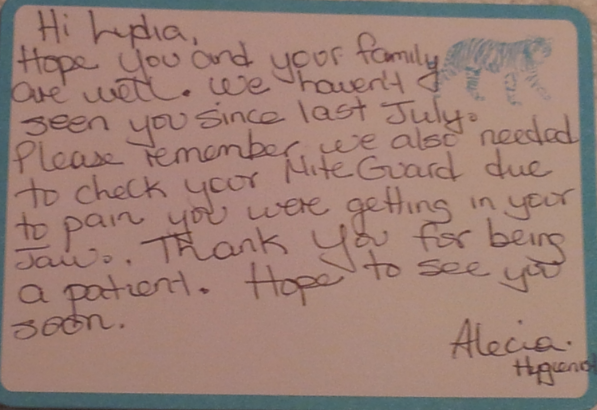 Hi Lydia,
Hope you and your family
are well. We haven't
seen you since last July.
Please remember we also needed
to check your Nite Guard due
to pain you were getting in your
Jaw. Thank you for being
a patient. Hope to see you
soon.
Alecia.
Hygienist